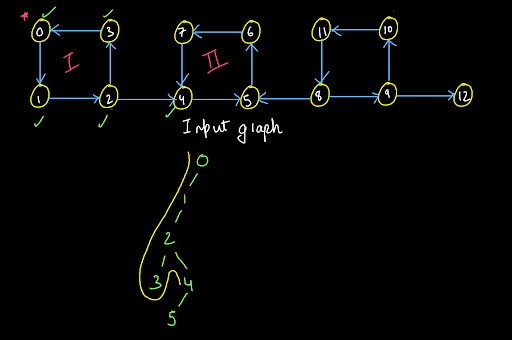 * 0 ✓ 3 ✓ 7 6 11 10
I II
1 2 4 5 8 9 12
✓ ✓ ✓
Input graph
0
1
2
3 4
5